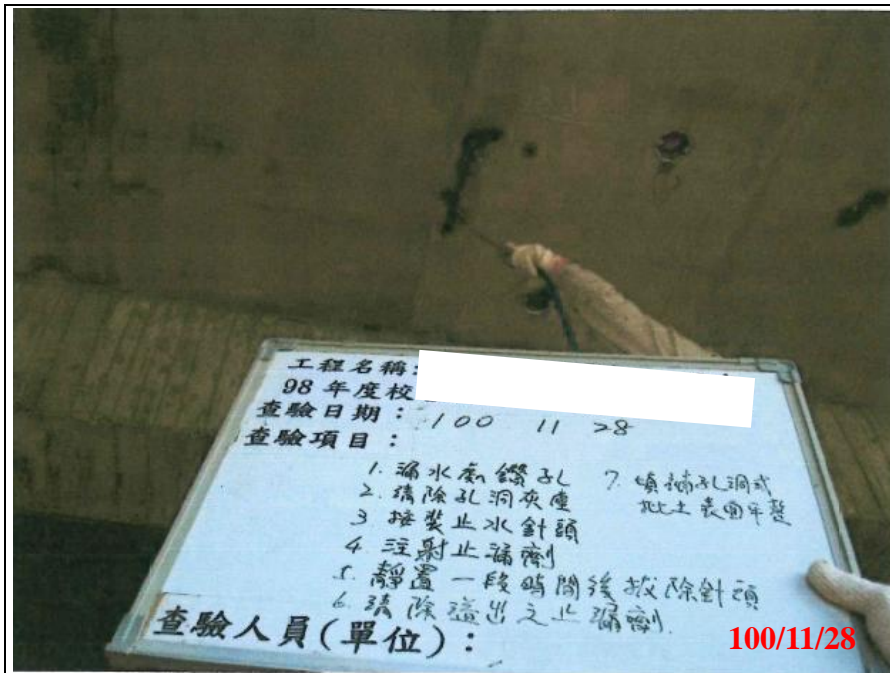 工程名稱:
98 年度校
查驗日期: 100 11 28
查驗項目:
1. 漏水處鑽孔
2. 清除孔洞灰塵
3 接裝止水針頭
4. 注射止漏劑
5. 靜置一段時間後拔除針頭
6. 清除溢出之止漏劑.
7. 填補孔洞或
批土表面平整
查驗人員(單位):
100/11/28